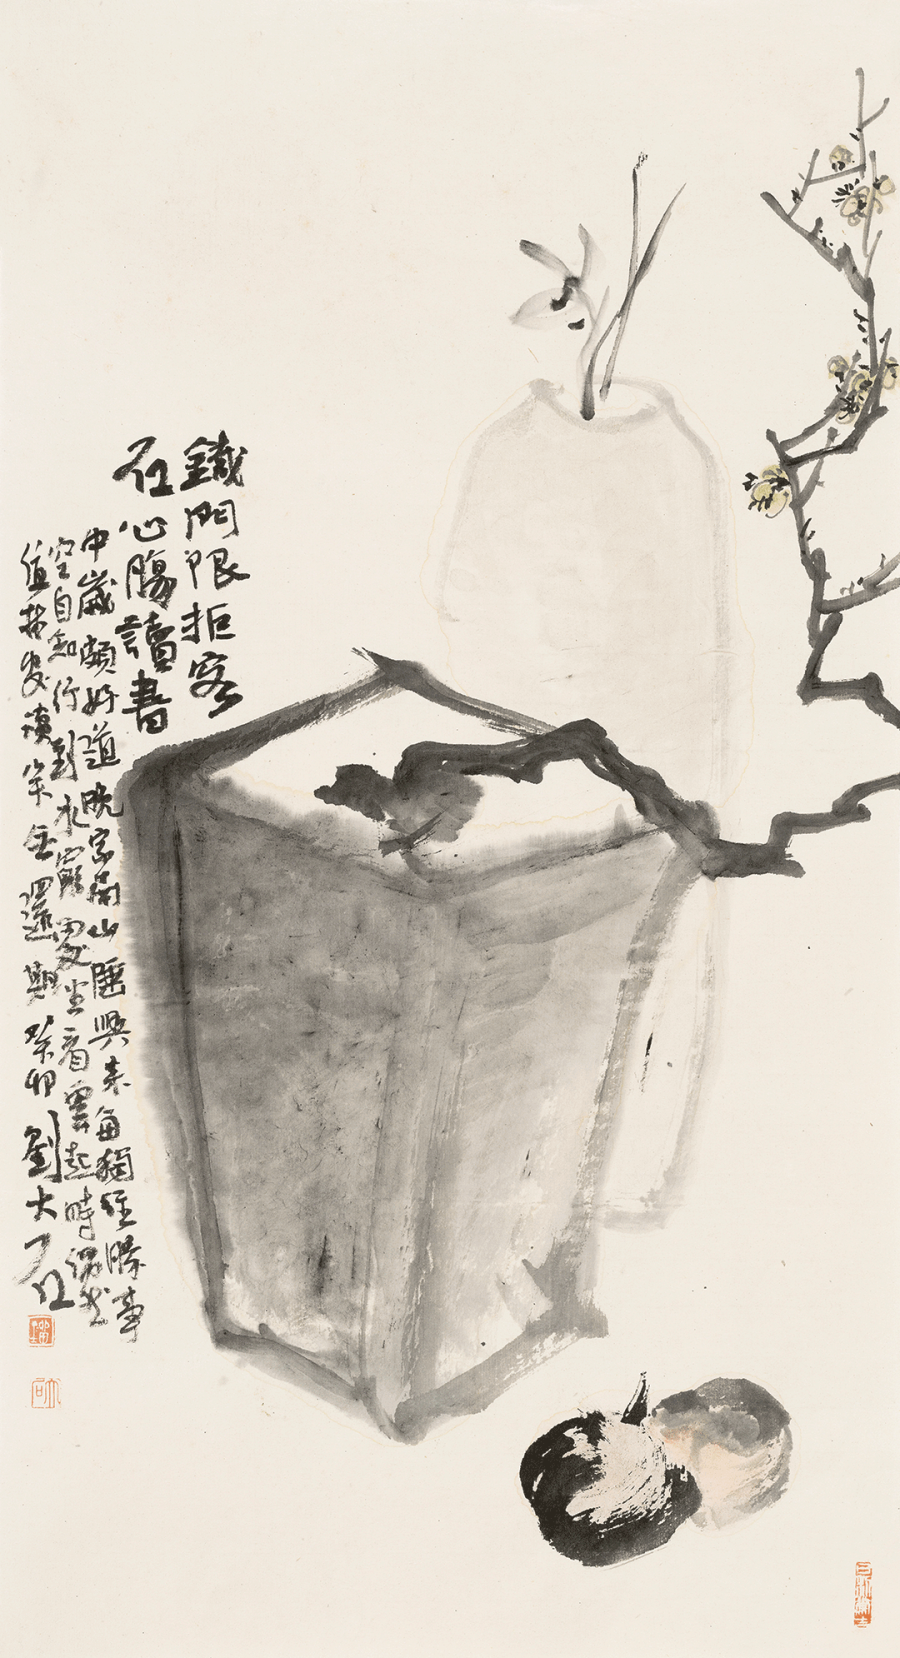 鐵門限拒客
石心腸讀書
中歲頗好道晚家南山陲興來每獨往勝事
空自知行到水窮處坐看雲起時偶然
值林叟談笑無還期癸卯劉大石